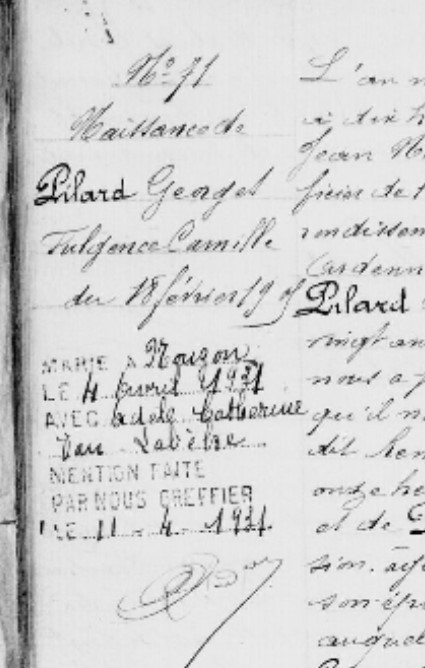 N° 71
Naissance de
Pilard Georges
Fulgence Camille
du 18 février 19
MARIE A Mouzon
LE 4 avril 1931
AVEC Adèle Catherine
Van
MENTION FAITE
PAR NOUS GREFFIER
LE 11 - 4 - 1931
L'an
à dix h
Jean
ficier de l
rondissem
Ardenn
Pilard
vingt an
nous a p
qu'il n
dit
onze he
et de
sion. âg
son épo
auquel